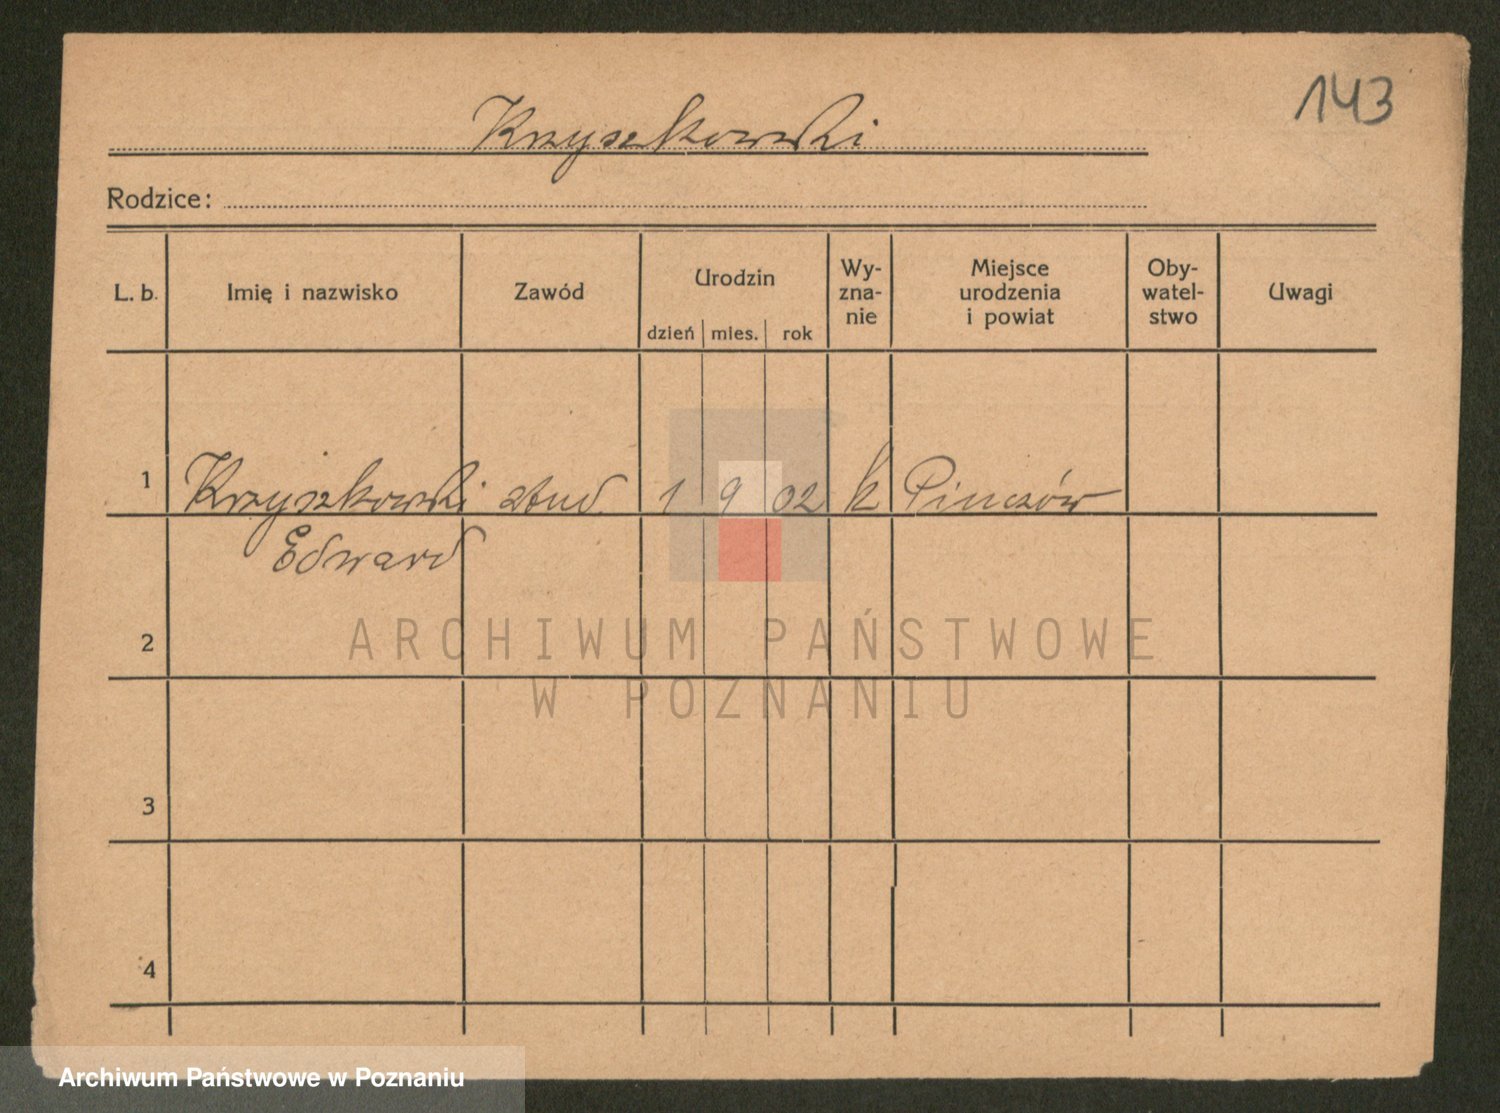 143
Krzyszkowski
Rodzice:
L. b. Imię i nazwisko Zawód Urodzin dzień mies. rok Wy-zna-nie Miejsce urodzenia i powiat Oby-watel-stwo Uwagi
1 Krzyszkowski stud. 1 9 02 k Pinczów
Edward
2
ARCHIWUM PAŃSTWOWE
W POZNANIU
3
4
Archiwum Państwowe w Poznaniu